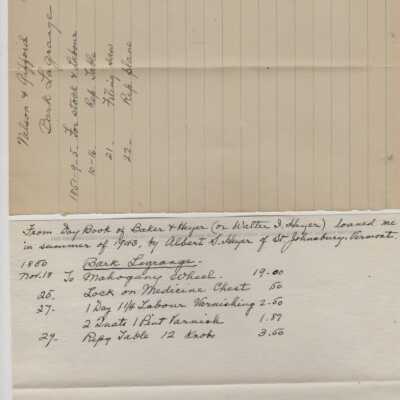 Nelson & Gifford
Bark LaGrange
1851-9-5- For stock & labour
10-16 Rep. Table
21- Filing saw
22- Rep plane
From Day Book of Baker & Heyer (or Walter D. Heyer) loaned me
in summer of 1943, by Albert S. Heyer of St Johnsbury, Vermont.
1850 Bark Legrange-
Nov. 18 To Mahogany Wheel. 19.00
25. Lock on Medicine Chest 50
27. 1 Day 1 1/4 Labour Varnishing 2.50
2 Quats 1 Pint Varnish 1.87
29. Repg Table 12 Knobs 3.50